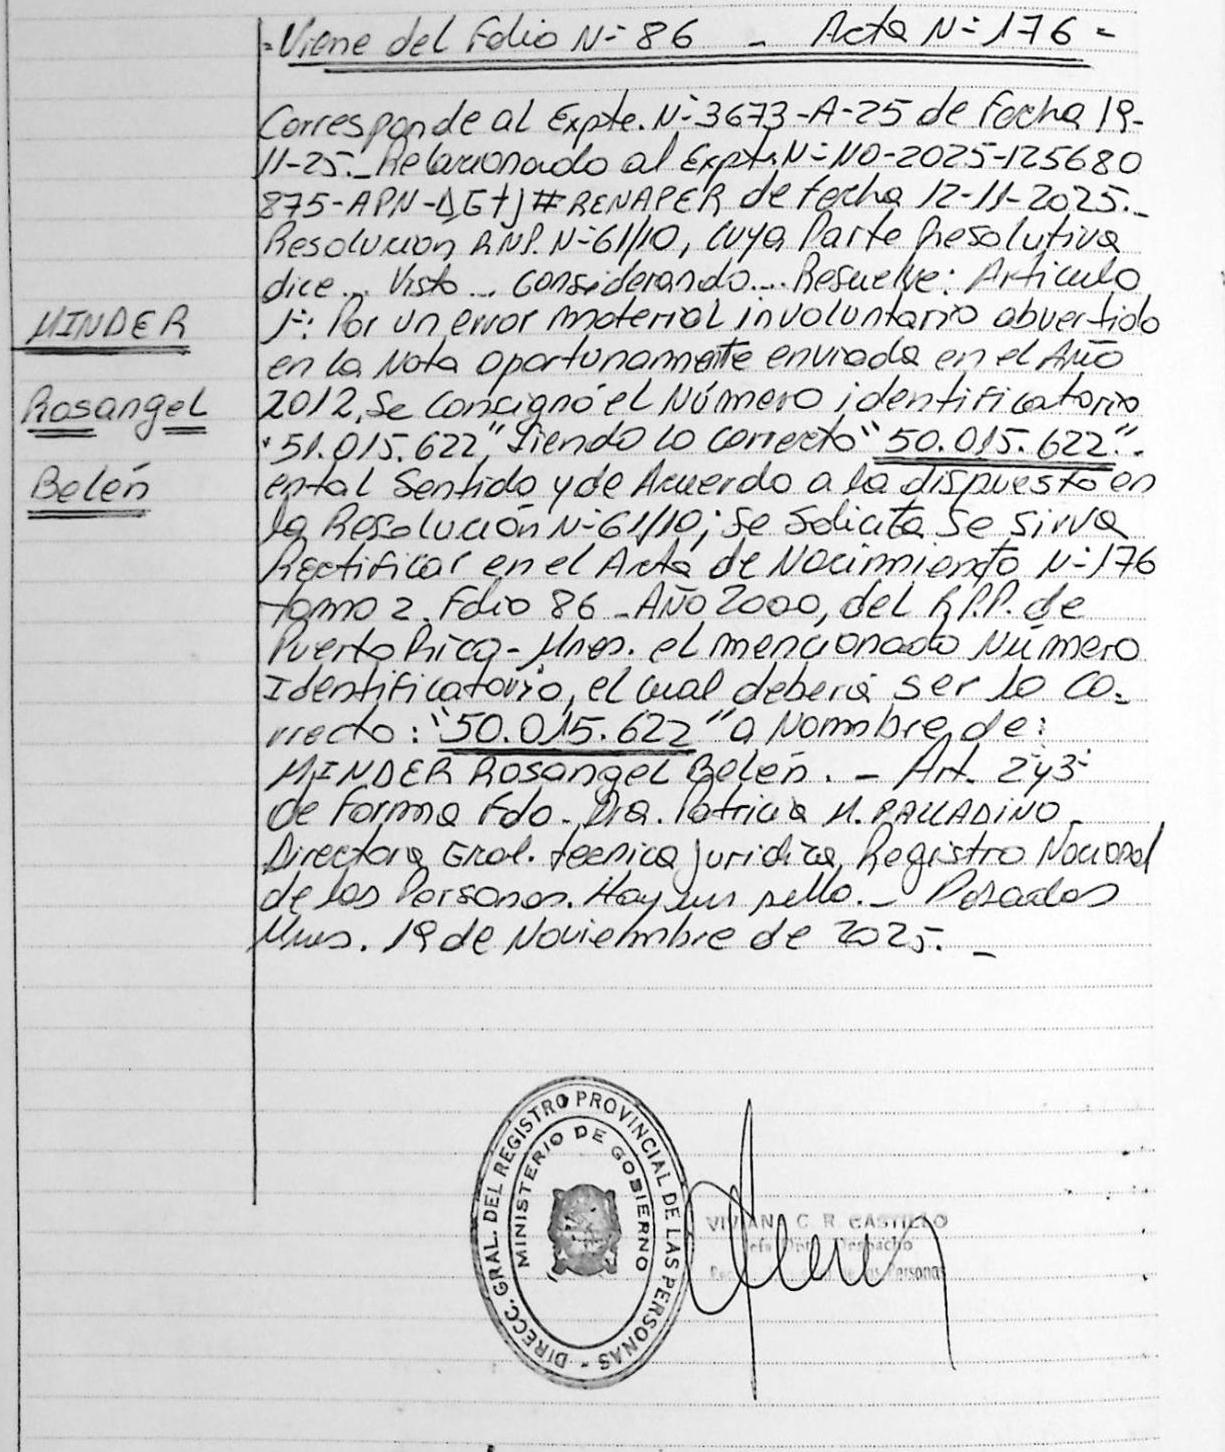 =Viene del Folio N= 86 - Acta N= 176 =
Corresponde al Expte. N=3673-A-25 de Fecha 19-
11-25._ Relacionado al Expt. N=NO-2025-125680
875-APN-DGTJ#RENAPER de fecha 12-11-2025._
Resolucion, RNP. N=61/10, cuya Parte Resolutiva
dice... Visto... Considerando... Resuelve: Articulo
1=: Por un error material involuntario abvertido
MINDER
en la Nota oportunamente enviada en el Año
2012, Se Concignó el Número identificatorio
Rosangel
"51.015.622", Siendo lo correcto "50.015.622".
Belén
ental Sentido y de Acuerdo a la dispuesto en
la Resolución N=61/10; Se Solicita Se Sirva
Rectificar en el Acta de Nacimiento N=176
tomo 2. Folio 86 _ AÑO 2000, del R.P.P. de
Puerto Rico - Mnes. el mencionado Número
Identificatorio, el cual deberá ser lo co-
rrecto: "50.015.622" a Nombre de:
MINDER Rosangel Belén. - Art. 2y3=
de Forma Fdo. Dra. Patricia M. PALLADINO.
Directora Gral. tecnica Juridica, Registro Nacional
de las Personas. Hay un sello._ Posadas
Mnes. 19 de Noviembre de 2025. _
DIRECC. GRAL. DEL REGISTRO PROVINCIAL DE LAS PERSONAS -
MINISTERIO DE GOBIERNO
VIVIANA C. R. CASTILLO
Despacho
Personas